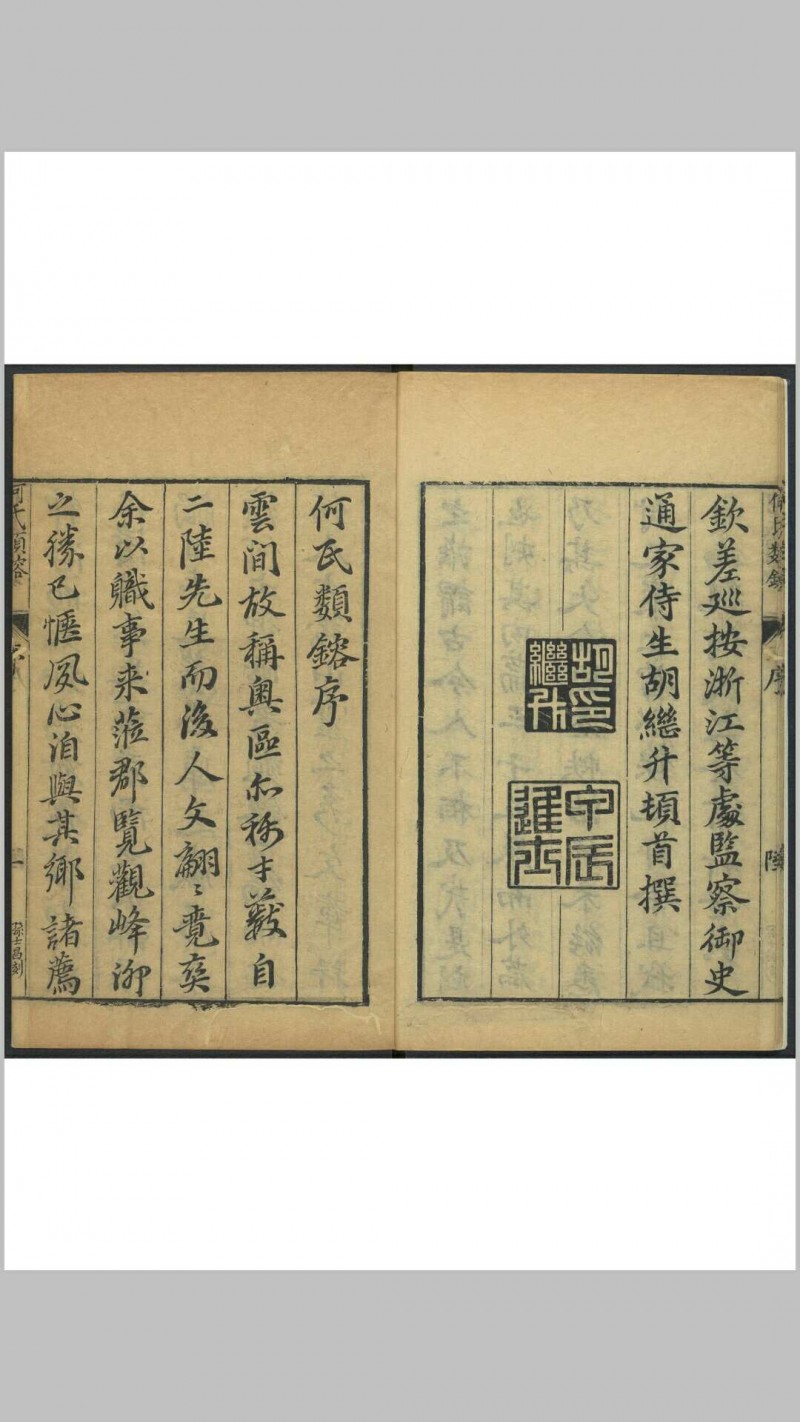 何氏類鎔
序
欽差巡按浙江等處監察御史
通家侍生胡繼升頓首撰
胡繼升印
甲辰進士
何氏類鎔序
雲間故稱奧區亦称才藪自
二陸先生而後人文翩〻竞奕
余以職事来蒞郡覽觀峰泖
之勝已愜夙心洎與其鄉諸薦
何氏類鎔
序
一